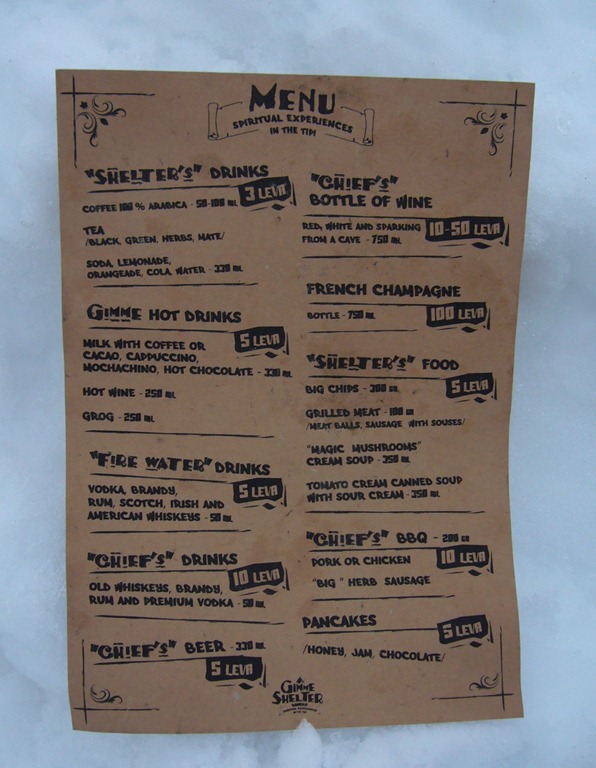 MENU
SPIRITUAL EXPERIENCES
IN THE TIPI
"SHELTER'S" DRINKS
3 LEVA
COFFEE 100 % ARABICA - 50-100 ML
TEA
/BLACK, GREEN, HERBS, MATE/
SODA, LEMONADE,
ORANGEADE, COLA, WATER - 330 ML
GIMME HOT DRINKS
5 LEVA
MILK WITH COFFEE OR
CACAO, CAPPUCCINO,
MOCHACHINO, HOT CHOCOLATE - 330 ML
HOT WINE - 250 ML
GROG - 250 ML
"FIRE WATER" DRINKS
5 LEVA
VODKA, BRANDY,
RUM, SCOTCH, IRISH AND
AMERICAN WHISKEYS - 50 ML
"CHIEF'S" DRINKS
10 LEVA
OLD WHISKEYS, BRANDY,
RUM AND PREMIUM VODKA - 50 ML
"CHIEF'S" BEER - 330 ML
5 LEVA
"CHIEF'S"
BOTTLE OF WINE
10-50 LEVA
RED, WHITE AND SPARKING
FROM A CAVE - 750 ML
FRENCH CHAMPAGNE
100 LEVA
BOTTLE - 750 ML
"SHELTER'S" FOOD
5 LEVA
BIG CHIPS - 300 GR
GRILLED MEAT - 100 GR
/MEAT BALLS, SAUSAGE WITH SOUSES/
"MAGIC MUSHROOMS"
CREAM SOUP - 350 ML
TOMATO CREAM CANNED SOUP
WITH SOUR CREAM - 350 ML
"CHIEF'S" BBQ - 200 GR
10 LEVA
PORK OR CHICKEN
"BIG" HERB SAUSAGE
PANCAKES
5 LEVA
/HONEY, JAM, CHOCOLATE/
GIMME
SHELTER